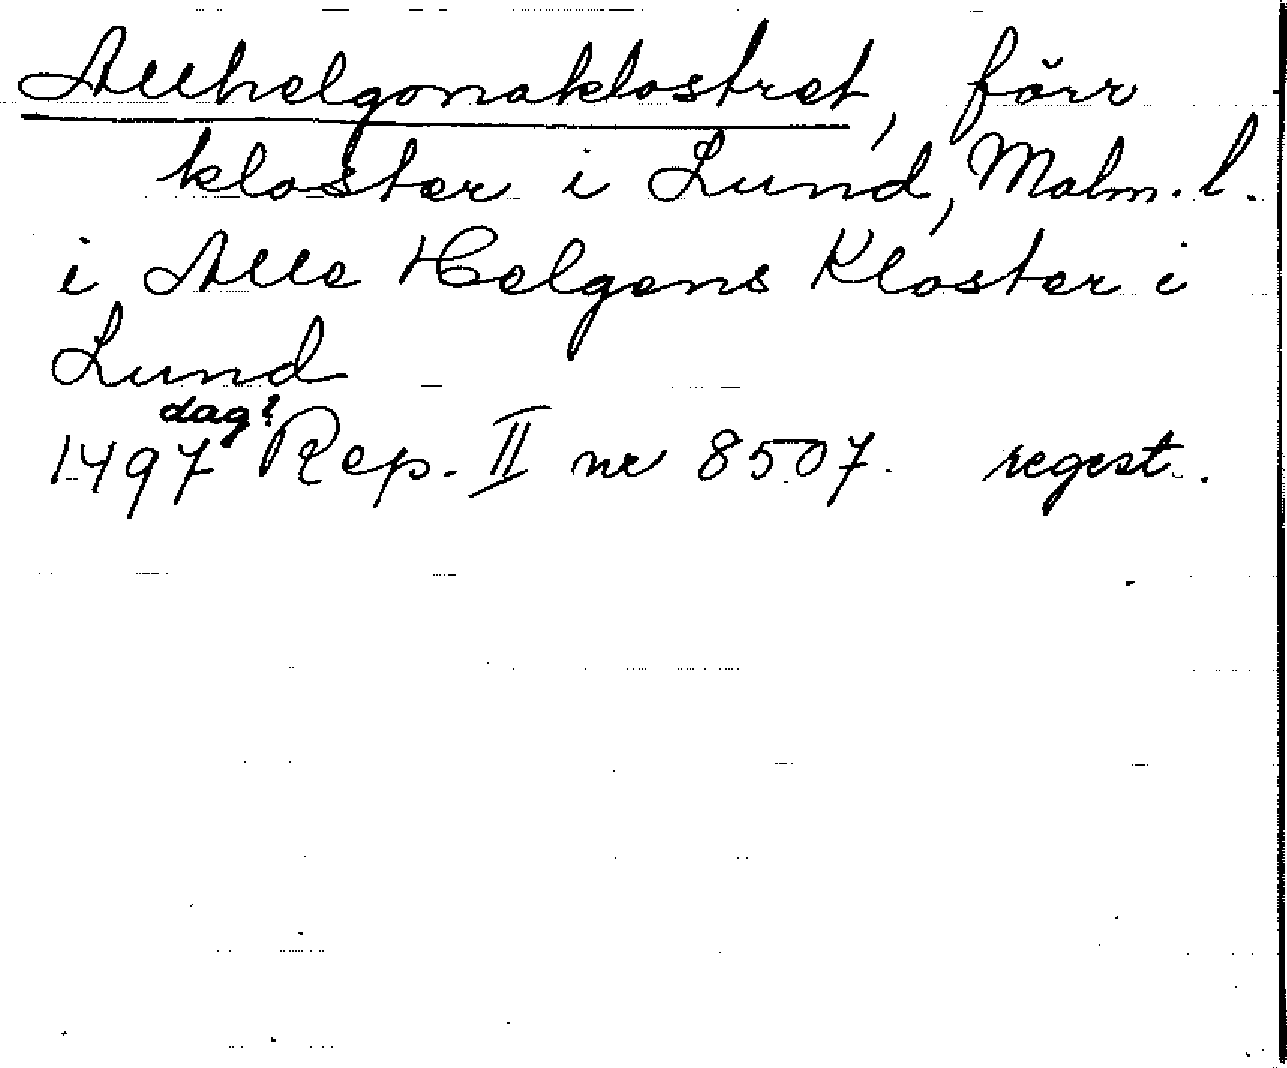 Allhelgonaklostret, förr
kloster i Lund, Malm. l.
i Alle Helgens Kloster i
Lund
dag?
1497 Rep. II nr 8507. regest.